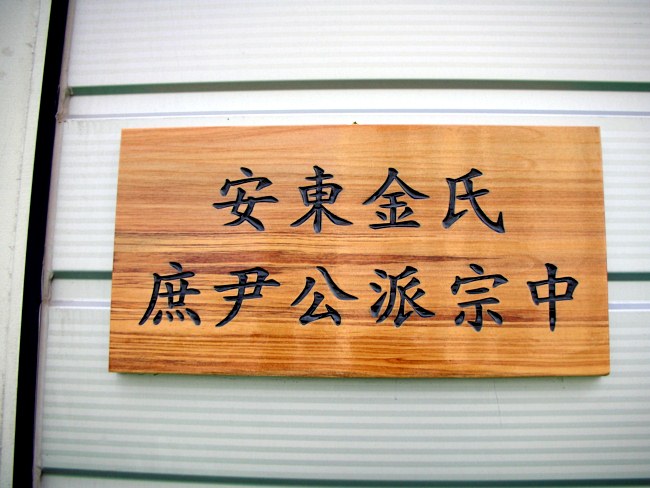 安東金氏
庶尹公派宗中